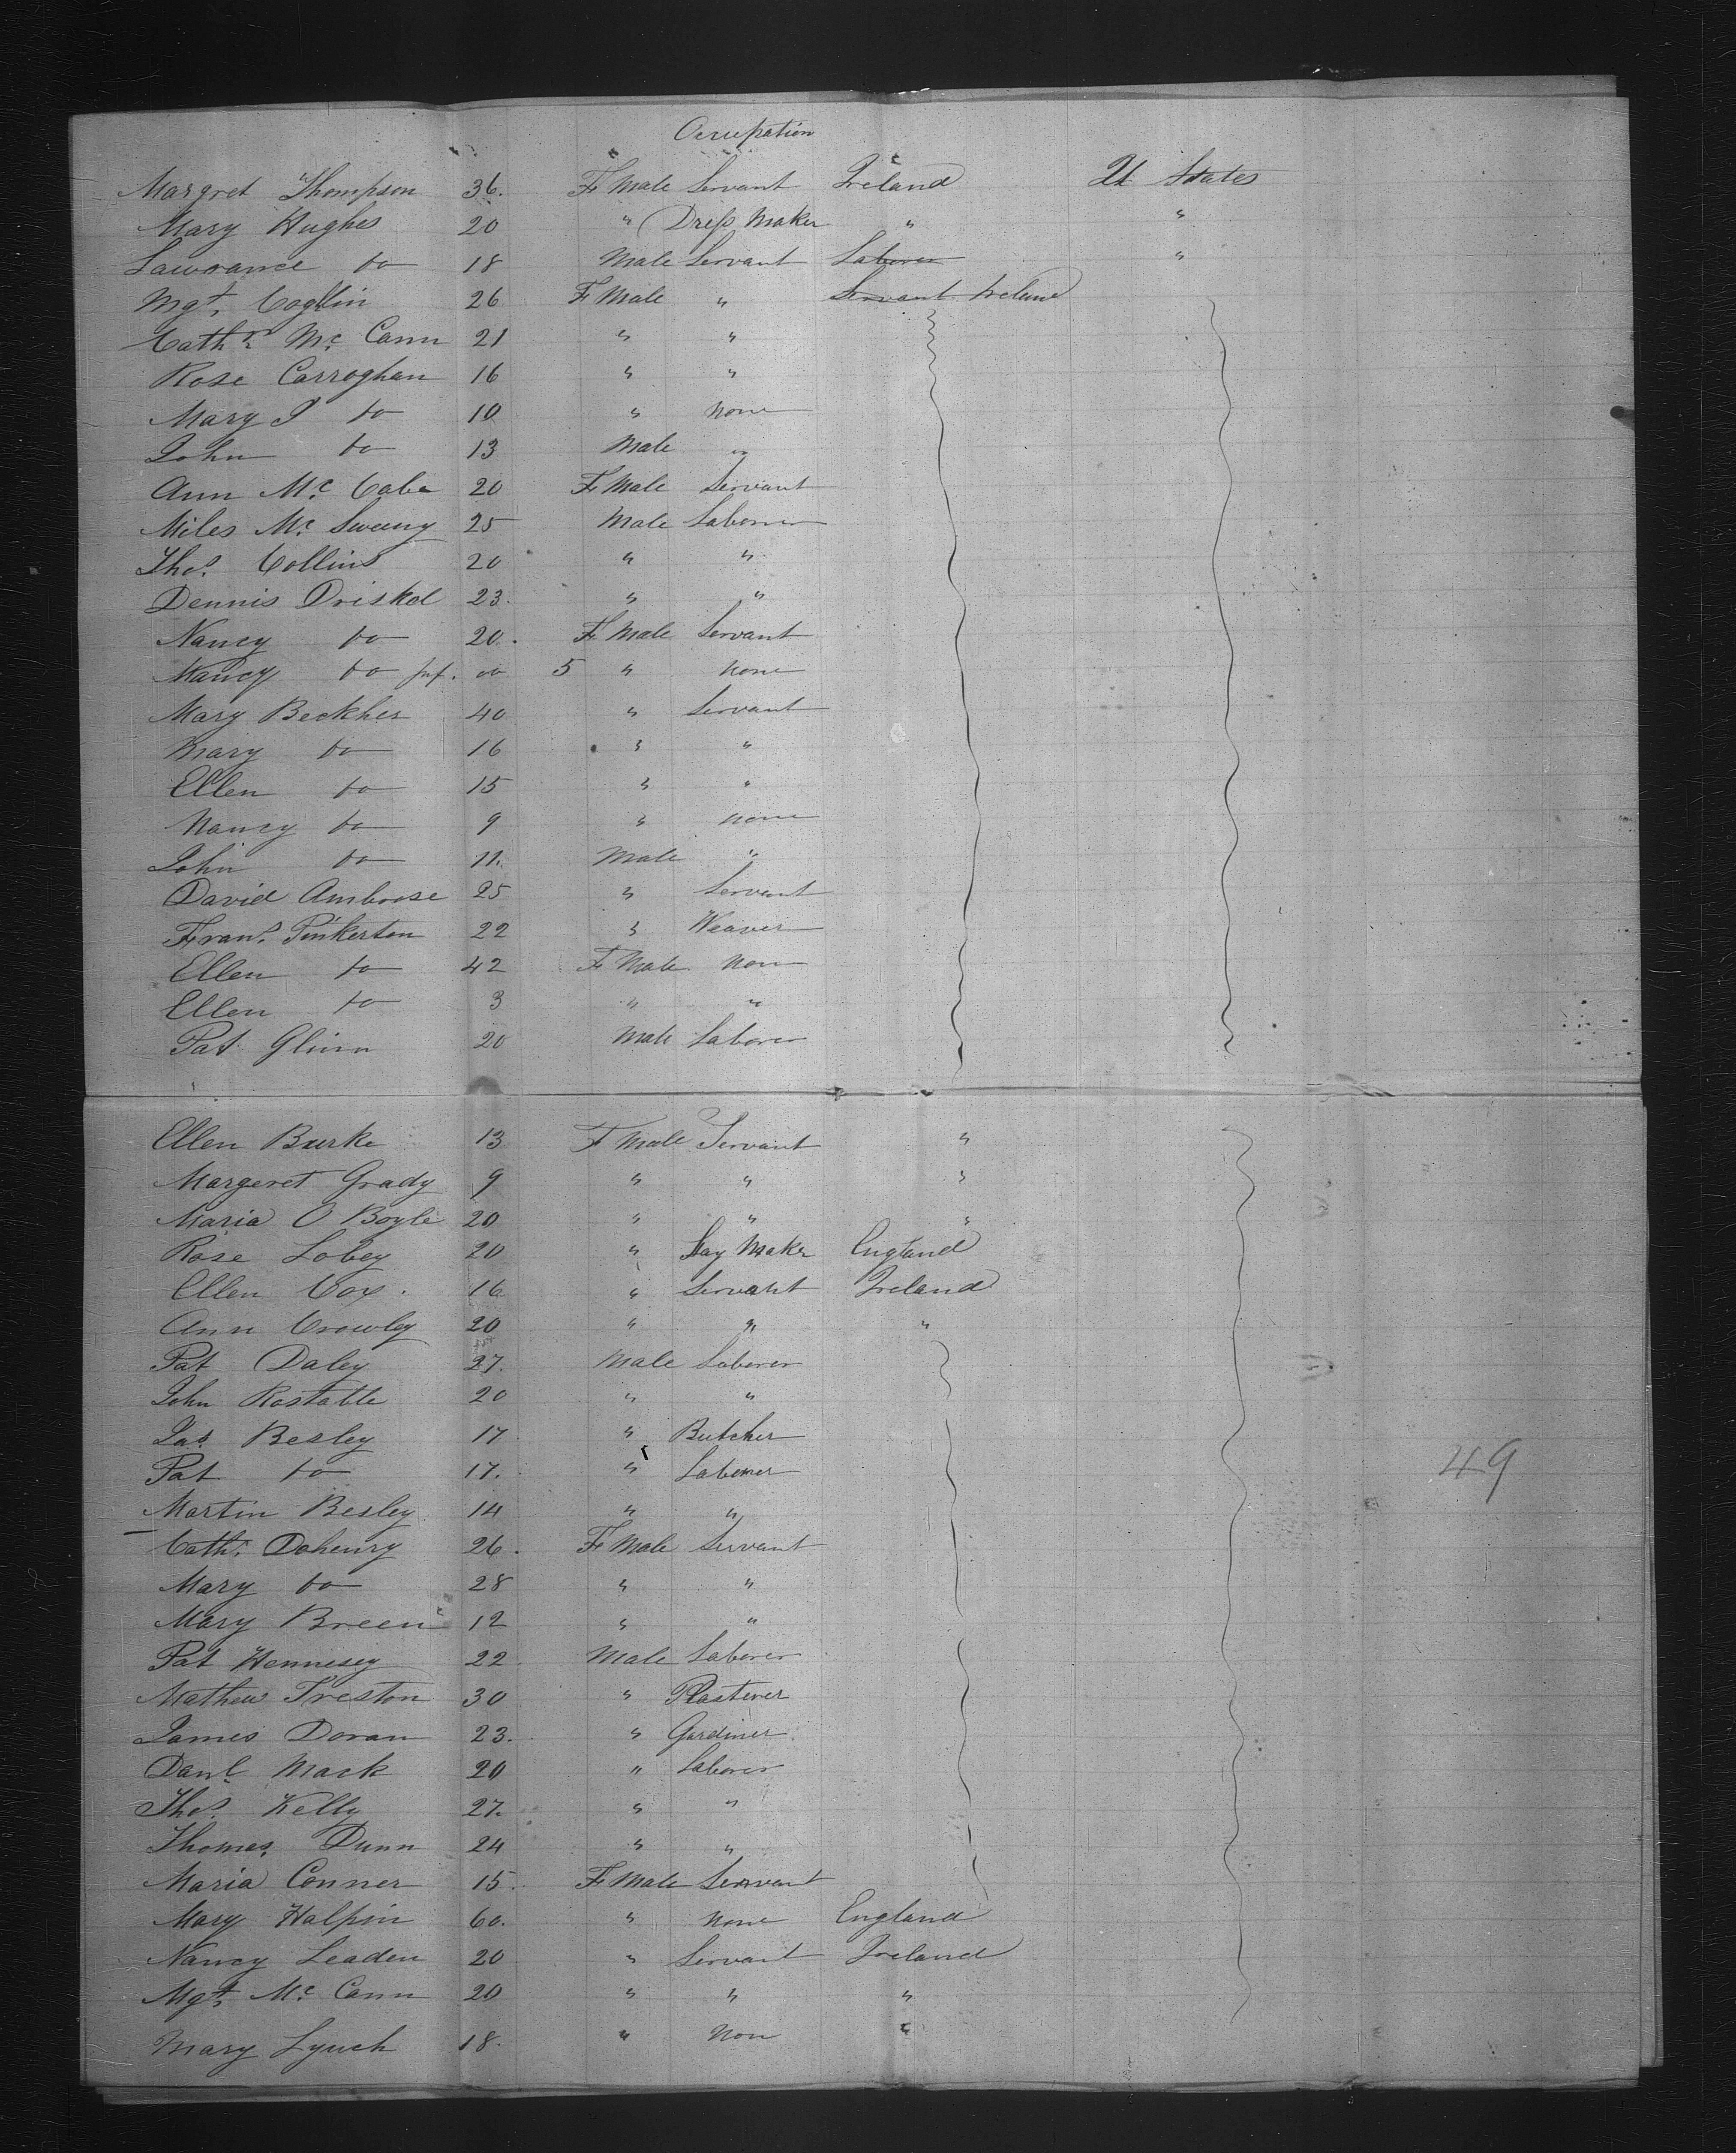 Occupation
Margret Thompson 36. F Male Servant Ireland Ut States
Mary Hughes 20 " Dress Maker " "
Lawrance do 18 Male Servant Laborer "
Mgt. Coglin 26 F Male " Servant Ireland
Cathn Mc Cann 21 " "
Rose Carroghan 16 " "
Mary J do 10 " none
John do 13 Male "
Ann Mc Cabe 20 F Male Servant
Miles Mc Sweeny 25 Male Laborer
Thos. Collins 20 " "
Dennis Driskel 23. " "
Nancy do 20. F Male Servant
Nancy do inf. 00 5 " none
Mary Beckher 40 " Servant
Mary do 16 " "
Ellen do 15 " "
Nancy do 9 " none
John do 11. Male "
David Ambrose 25 " Servant
Frans. Pinkerton 22 " Weaver
Ellen do 42 F Male Non
Ellen do 3 " "
Pat Glinn 20 Male Laborer
Ellen Burke 13 F Male Servant "
Margeret Grady 9 " " "
Maria O Boyle 20 " " "
Rose Lobey 20 " Stay Maker England
Ellen Cox. 16 " Servant Ireland
Ann Crowley 20 " " "
Pat Daley 27. Male Laborer
John Rostatte 20 " "
Jas. Besley 17 " Butcher
Pat do 17. " Laborer
49
Martin Besley 14 " "
Cath. Doheny 26. F Male Servant
Mary do 28 " "
Mary Breen 12 " "
Pat Hennesey 22 Male Laborer
Mathew Treston 30 " Plasterer
James Doran 23. " Gardiner
Danl. Mack 20 " Laborer
Thos. Kelly 27. " "
Thomas Dunn 24 " "
Maria Conner 15. F Male Servant
Mary Halpin 60. " none England
Nancy Leaden 20 " Servant Ireland
Mgt. Mc Cann 20 " " "
Mary Lynch 18. " Non "